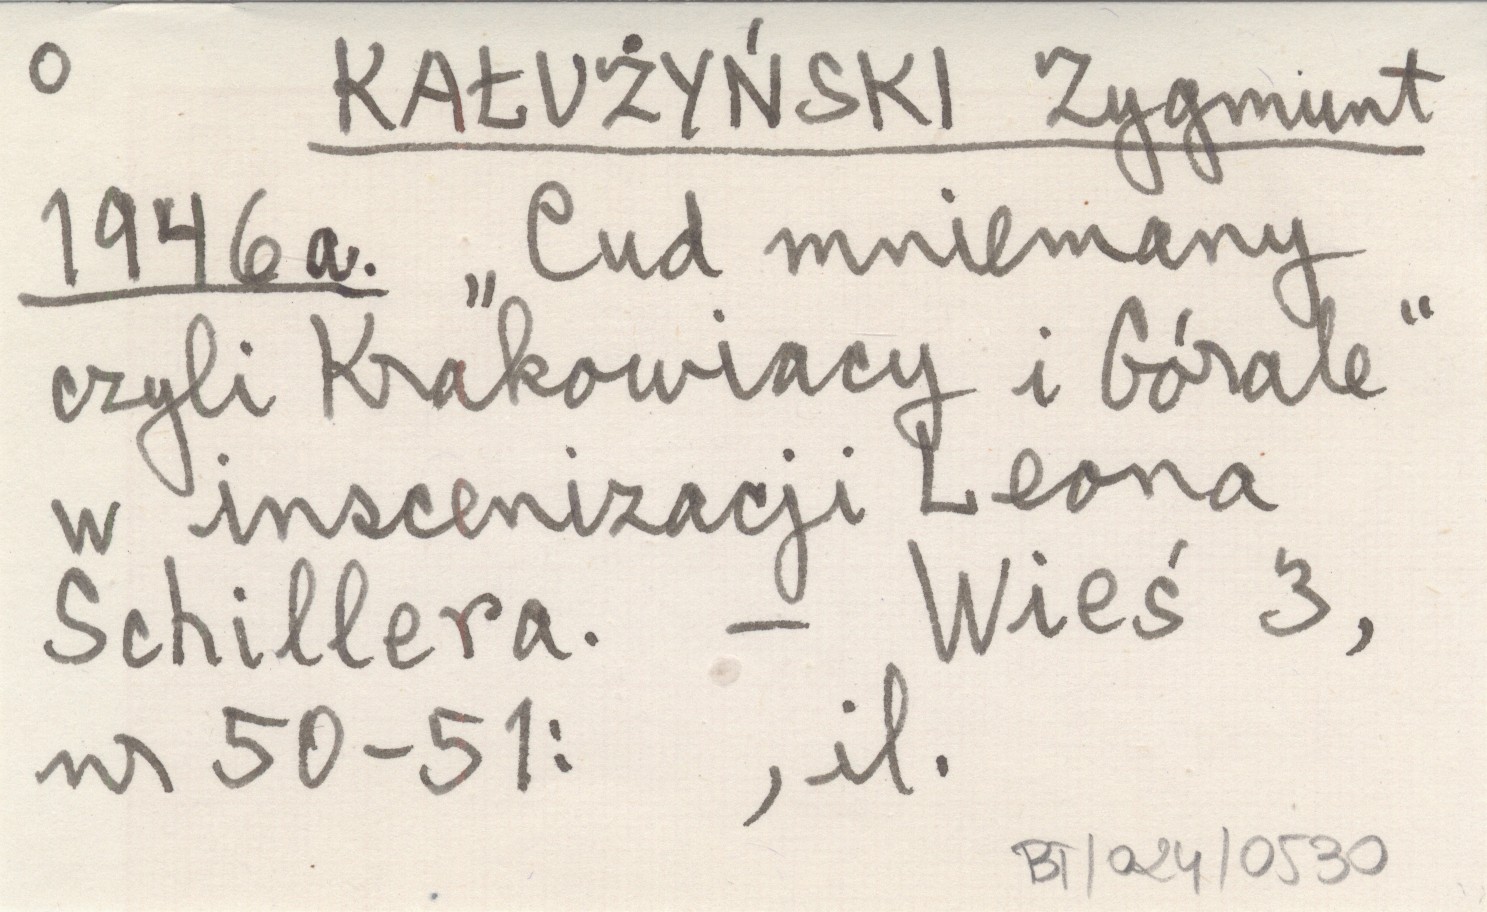 o KAŁUŻYŃSKI Zygmunt
1946a. „Cud mniemany
czyli Krakowiacy i Górale“
w inscenizacji Leona
Schillera. – Wieś 3,
nr 50-51: , il.
BT/024/0530